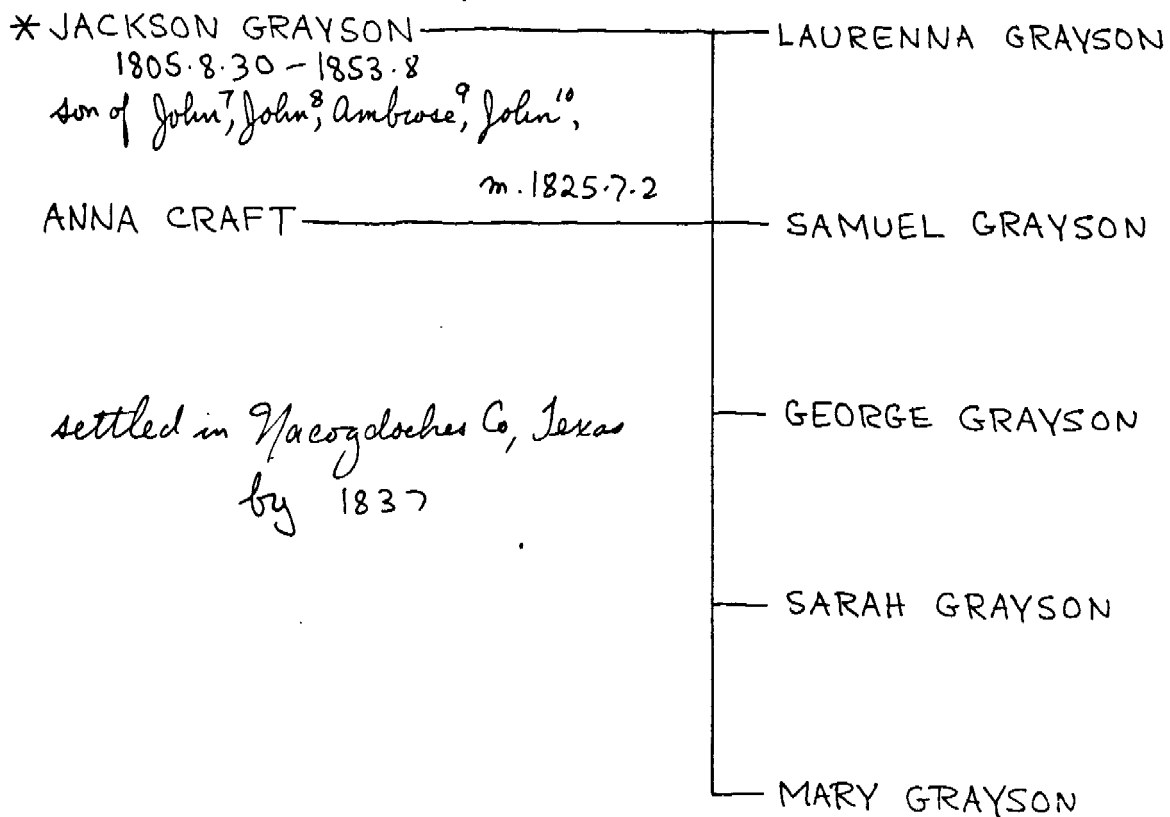 * JACKSON GRAYSON
1805.8.30 - 1853.8
son of John⁷, John⁸, Ambrose⁹, John¹⁰,
m. 1825.7.2
ANNA CRAFT
settled in Nacogdoches Co, Texas
by 1837
LAURENNA GRAYSON
SAMUEL GRAYSON
GEORGE GRAYSON
SARAH GRAYSON
MARY GRAYSON